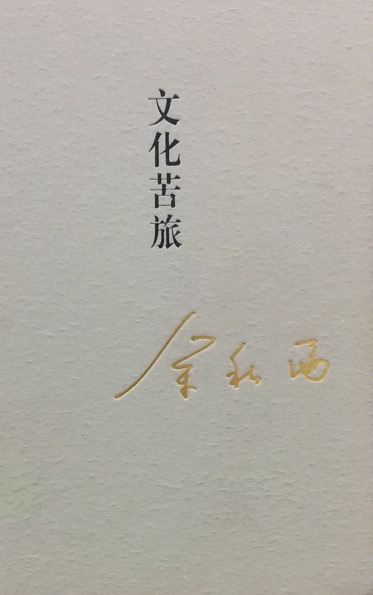 文化苦旅
余秋雨